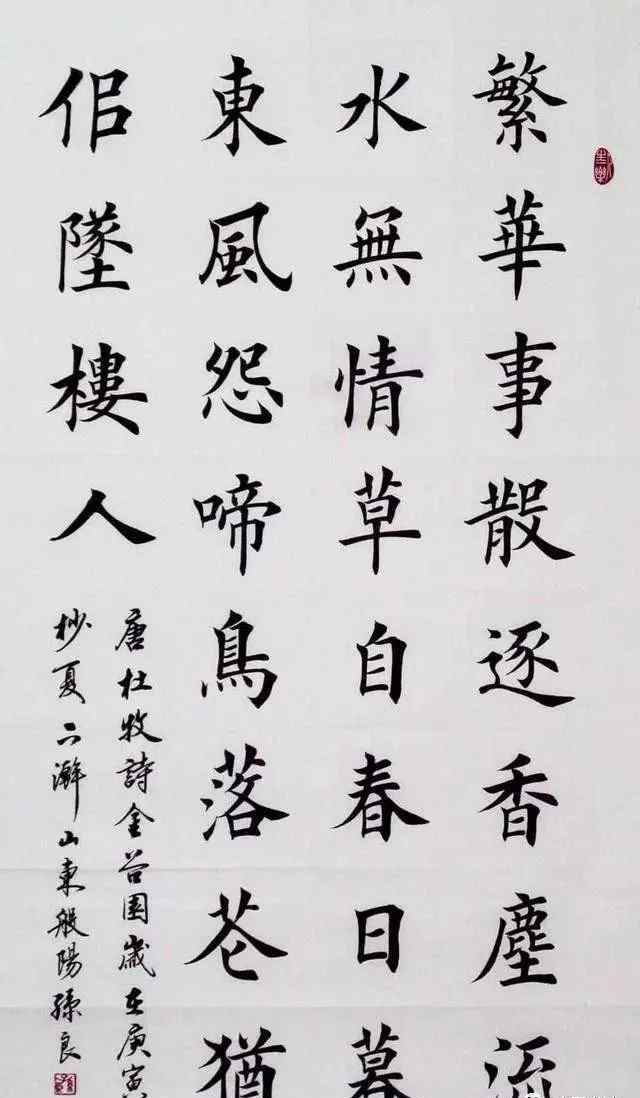 繁華事散逐香塵流
水無情草自春日暮
東風怨啼鳥落花猶
佀墜樓人
唐杜牧詩金谷園歲在庚寅
杪夏下澣山東般陽孫良